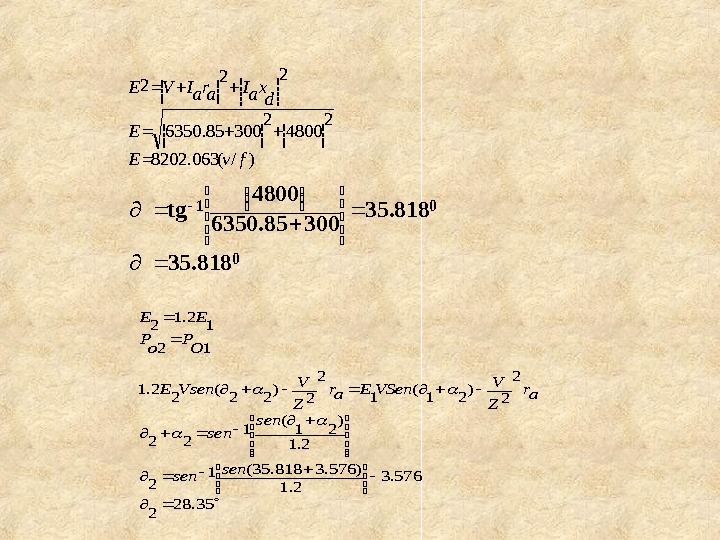 E²=(V+Iₐrₐ)²+(Iₐx_d)²
E=√((6350.85+300)²+(4800)²)
E=8202.063(v/f)
∂ =tg⁻¹((4800)/(6350.85+300))=35.818⁰
∂ =35.818⁰
E₂=1.2E₁
P_o2=P_O1
1.2E₂Vsen(∂₂+α₂)-V²/Z² rₐ=E₁VSen(∂₁+α₂)-V²/Z² rₐ
∂₂+α₂=sen⁻¹(sen(∂₁+α₂)/1.2)
∂₂=sen⁻¹(sen(35.818+3.576)/1.2)-3.576
∂₂=28.35°